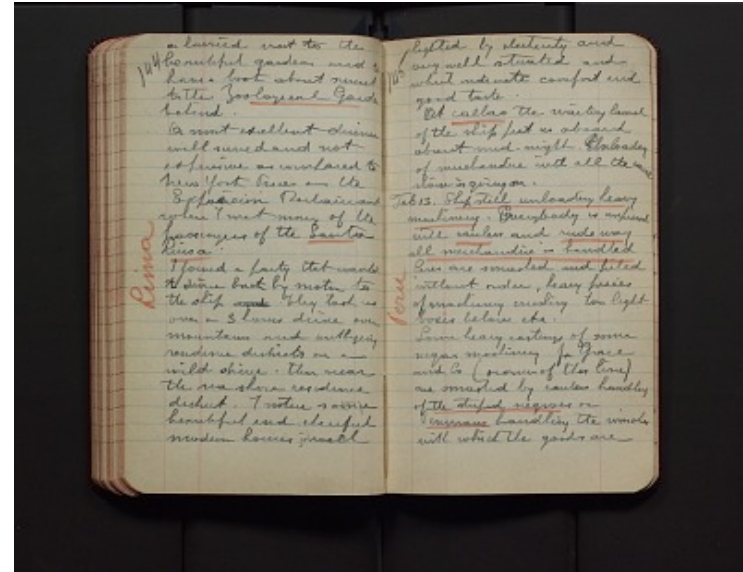 144
a hurried visit to the
beautiful gardens and
have a book about
to the Zoological Garden
behind.
A most excellent dinner
well served and not
expensive as compared to
New York Prices in the
Exposicion Restaurant
where I met many of the
passengers of the Santa
Luisa.
Lima
I joined a party that wanted
to drive back by motor to
the ship. They took us
over a 3 hours drive over
mountains and outlying
residence districts on a
wild drive. Then near
the sea shore residence
district. I notice some
beautiful and
modern houses
145
lighted by electricity and
very well situated and
which indicate comfort and
good taste.
At Callao the waiting launch
of the ship
about mid-night. Unloading
of merchandise with all the
is going on.
Feb 13. Ship still unloading heavy
machinery. Everybody is
careless and rude way
all merchandise is handled
are smashed and piled
without order, heavy pieces
of machinery crushing the light
boxes below etc.
Peru
Some heavy castings of some
sugar machinery for Grace
and Co (owners of this line)
are smashed by careless handling
of the stupid negroes or
handling the winches
with which the goods are